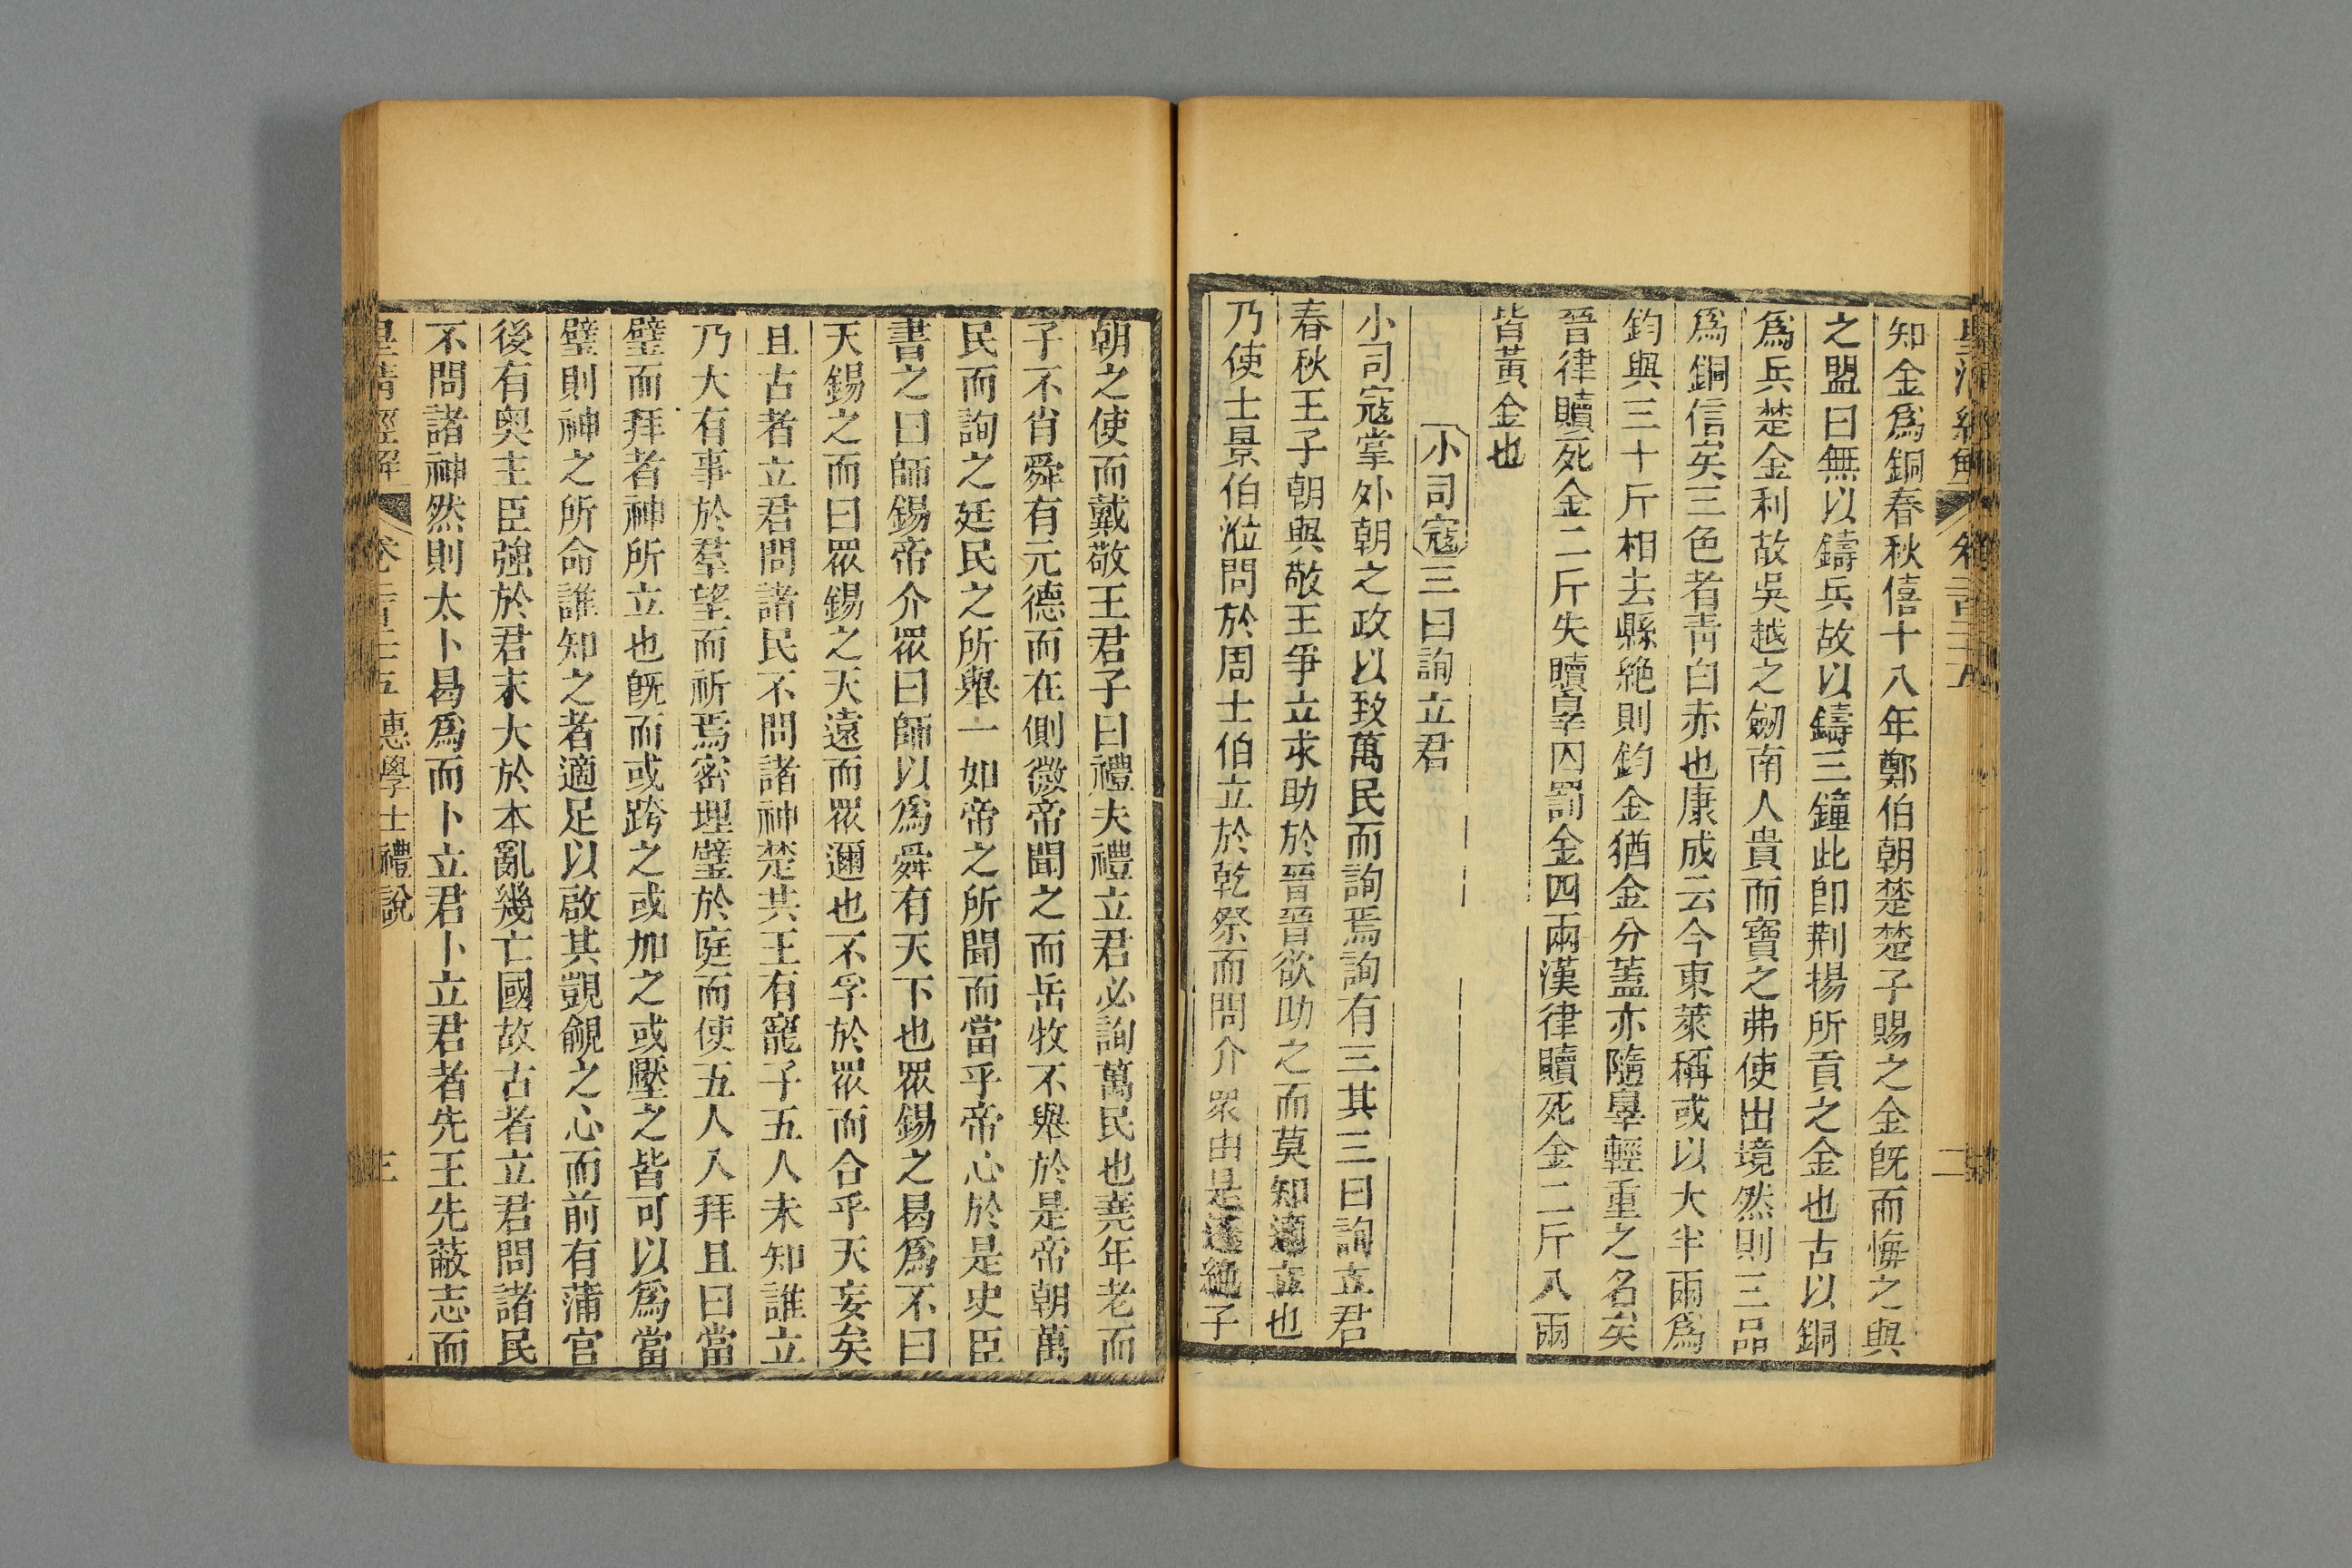 皇清經解 卷二百二十五 二
知金爲銅春秋僖十八年鄭伯朝楚楚子賜之金旣而悔之與
之盟曰無以鑄兵故以鑄三鐘此卽荆揚所貢之金也古以銅
爲兵楚金利故吳越之劒南人貴而寶之弗使出境然則三品
爲銅信矣三色者靑白赤也康成云今東萊稱或以大半兩爲
鈞與三十斤相去縣絶則鈞金猶金分蓋亦隨辠輕重之名矣
晉律贖死金二斤失贖辠囚罰金四兩漢律贖死金二斤八兩
皆黃金也
小司寇三曰詢立君
小司寇掌外朝之政以致萬民而詢焉詢有三其三曰詢立君
春秋王子朝與敬王爭立求助於晉晉欲助之而莫知適立也
乃使士景伯涖問於周士伯立於乾祭而問介眾由是遂絶子
朝之使而戴敬王君子曰禮夫禮立君必詢萬民也堯年老而
子不肖舜有元德而在側微帝聞之而岳牧不舉於是帝朝萬
民而詢之廷民之所舉一如帝之所聞而當乎帝心於是史臣
書之曰師錫帝介眾曰師以爲舜有天下也眾錫之曷爲不曰
天錫之而曰眾錫之天遠而眾邇也不孚於眾而合乎天妄矣
且古者立君問諸民不問諸神楚共王有寵子五人未知誰立
乃大有事於羣望而祈焉密埋璧於庭而使五人入拜且曰當
璧而拜者神所立也旣而或跨之或加之或壓之皆可以爲當
璧則神之所命誰知之者適足以啟其覬覦之心而前有蒲宫
後有奧主臣強於君末大於本亂幾亡國故古者立君問諸民
不問諸神然則太卜曷爲而卜立君卜立君者先王先蔽志而
皇淸經解 卷二百二十五 惠學士禮說 三